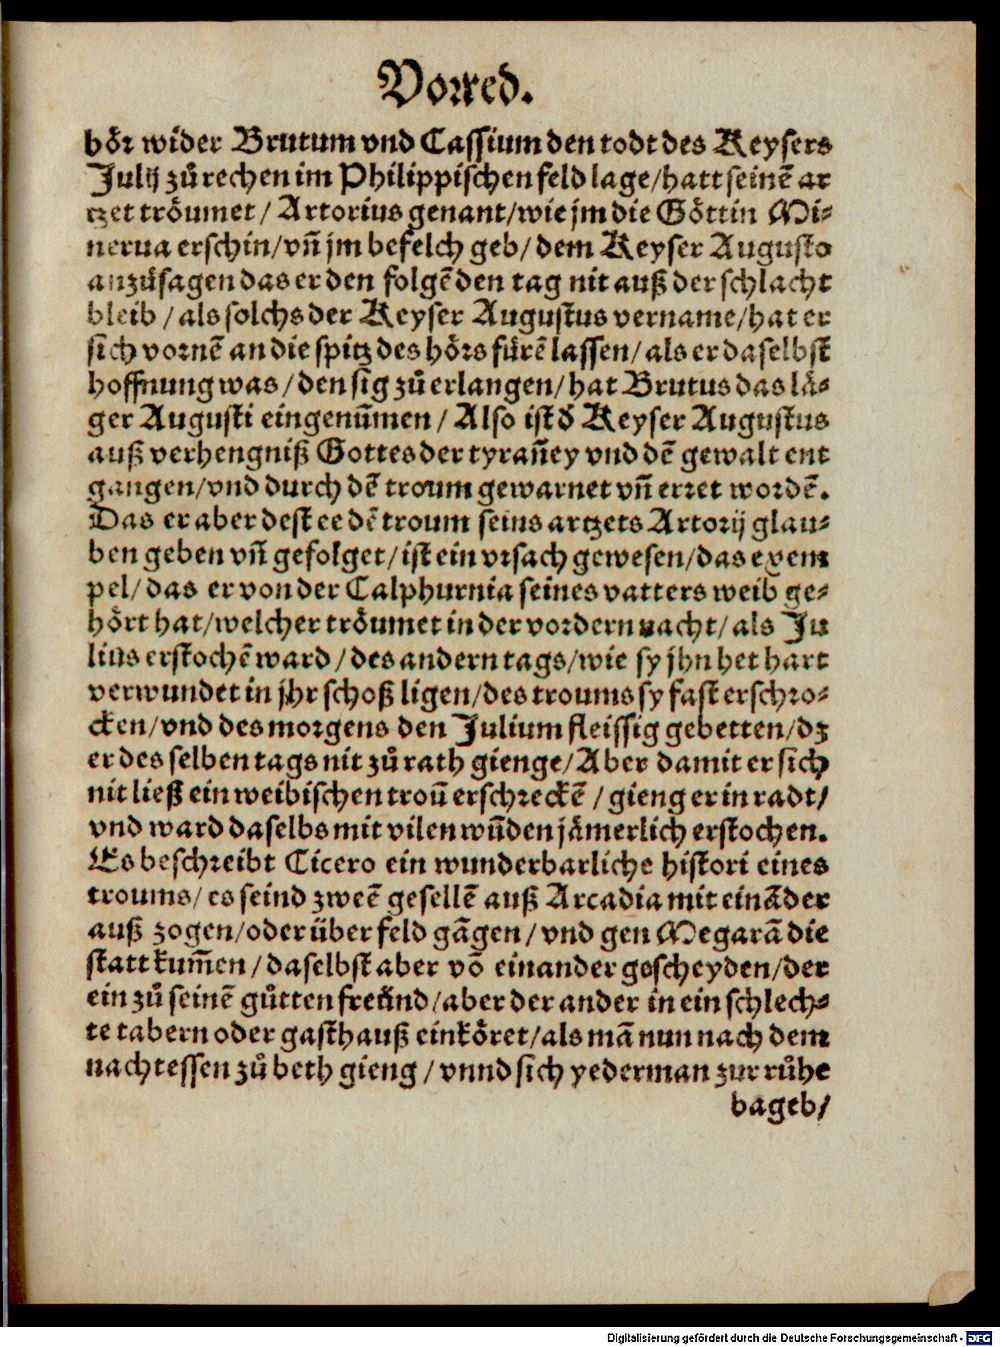 Vorred.
hör wider Brutum vnd Cassium den todt des Keysers
Julij zů rechen im Philippischen feld lage/hatt seinē ar
tzet tröumet/ Artorius genant/wie jm die Göttin Mi⸗
nerua erschin/vñ jm befelch geb/dem Keyser Augusto
anzůsagen das er den folgēden tag nit auß der schlacht
bleib/als solchs der Keyser Augustus vername/hat er
sich vornē an die spitz des hörs fürē lassen/als er daselbst
hoffnung was/den sig zů erlangen/hat Brutus das lä⸗
ger Augusti eingenūmen/ Also ist d̄ Keyser Augustus
auß verhengniß Gottes der tyrañey vnd dē gewalt ent
gangen/vnd durch dē troum gewarnet vñ erret wordē.
Das er aber dest ee dē troum seins artzets Artorij glau⸗
ben geben vñ gefolget/ist ein vrsach gewesen/das exem
pel/das er von der Calphurnia seines vatters weib ge⸗
hört hat/welcher tröumet in der vordern nacht/als Ju
lius erstochē ward/des andern tags/wie sy jhn het hart
verwundet in jhr schoß ligen/des troums sy fast erschro⸗
cken/vnd des morgens den Julium fleissig gebetten/dz
er des selben tags nit zů rath gienge/Aber damit er sich
nit ließ ein weibischen troū erschreckē/gieng er in radt/
vnd ward daselbs mit vilen wūden jämerlich erstochen.
Es beschreibt Cicero ein wunderbarliche histori eines
troums/es seind zweē gesellē auß Arcadia mit eināder
auß zogen/oder über feld gāgen/vnd gen Megarā die
statt kum̄en/daselbst aber vō einander gescheyden/der
ein zů seinē gůtten freünd/aber der ander in ein schlech⸗
te tabern oder gasthauß einköret/als mā nun nach dem
nachtessen zů beth gieng/vnnd sich yederman zur růhe
bageb/
Digitalisierung gefördert durch die Deutsche Forschungsgemeinschaft - DFG